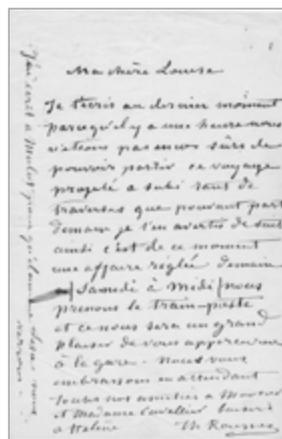 Ma chère Louise
Je t'écris au dernier moment
parcequ'il y a une heure nous
n'étions pas encor sûrs de
pouvoir partir ce voyage
projeté a subi tant de
traverses que pouvant partir
demain je t'en avertis de suite
ainsi c'est de ce moment
une affaire réglée demain
Samedi à Midi nous
prenons le train-poste
et ce nous sera un grand
plaisir de vous apercevoir
à la gare. Nous vous
embrassons en attendant
toutes nos amitiés à Monsieur
et Madame Cuvellier baisers
à Hélène
Th Rousseau
J'ai écrit à